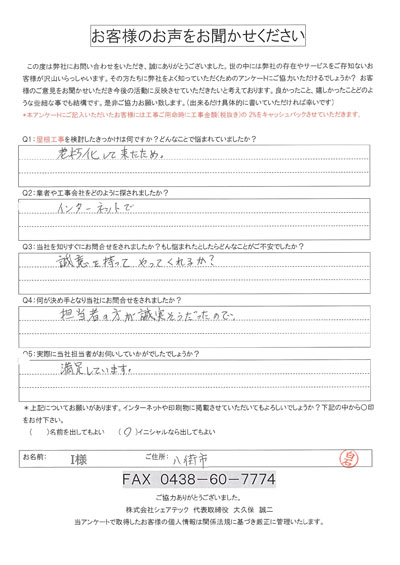 お客様のお声をお聞かせください
この度は弊社にお問い合わせをいただき、誠にありがとうございました。世の中には弊社の存在やサービスをご存知ないお
客様が沢山いらっしゃいます。その方たちに弊社をよく知っていただくためのアンケートにご協力いただけるでしょうか？ お客
様のご意見をお聞かせいただき今後の活動に反映させていただきたいと考えております。良かったこと、嬉しかったことどのよ
うな些細な事でも結構です。是非ご協力お願い致します。（出来るだけ具体的に書いていただければ幸いです）
*本アンケートにご記入いただいたお客様には工事ご用命時に工事金額（税抜き）の 2%をキャッシュバックさせていただきます。
Q1：屋根工事を検討したきっかけは何ですか？どんなことで悩まれていましたか？
老朽化して来たため。
Q2：業者や工事会社をどのように探されましたか？
インターネットで
Q3：当社を知りすぐにお問合せをされましたか？もし悩まれたとしたらどんなことがご不安でしたか？
誠意を持って やってくれるか？
Q4：何が決め手となり当社にお問合せをされましたか？
担当者の方が誠実そうだったので。
Q5：実際に当社担当者がお伺いしていかがでしたでしょうか？
満足しています。
＊上記についてお願いがあります。インターネットや印刷物に掲載させていただいてもよろしいでしょうか？下記の中から〇印
をお付下さい。
（ ）名前を出してもよい （〇）イニシャルなら出してもよい
お名前： I様 ご住所： 八街市
FAX 0438-60-7774
ご協力ありがとうございました。
株式会社シェアテック 代表取締役 大久保 誠二
当アンケートで取得したお客様の個人情報は関係法規に基づき厳正に管理いたします。